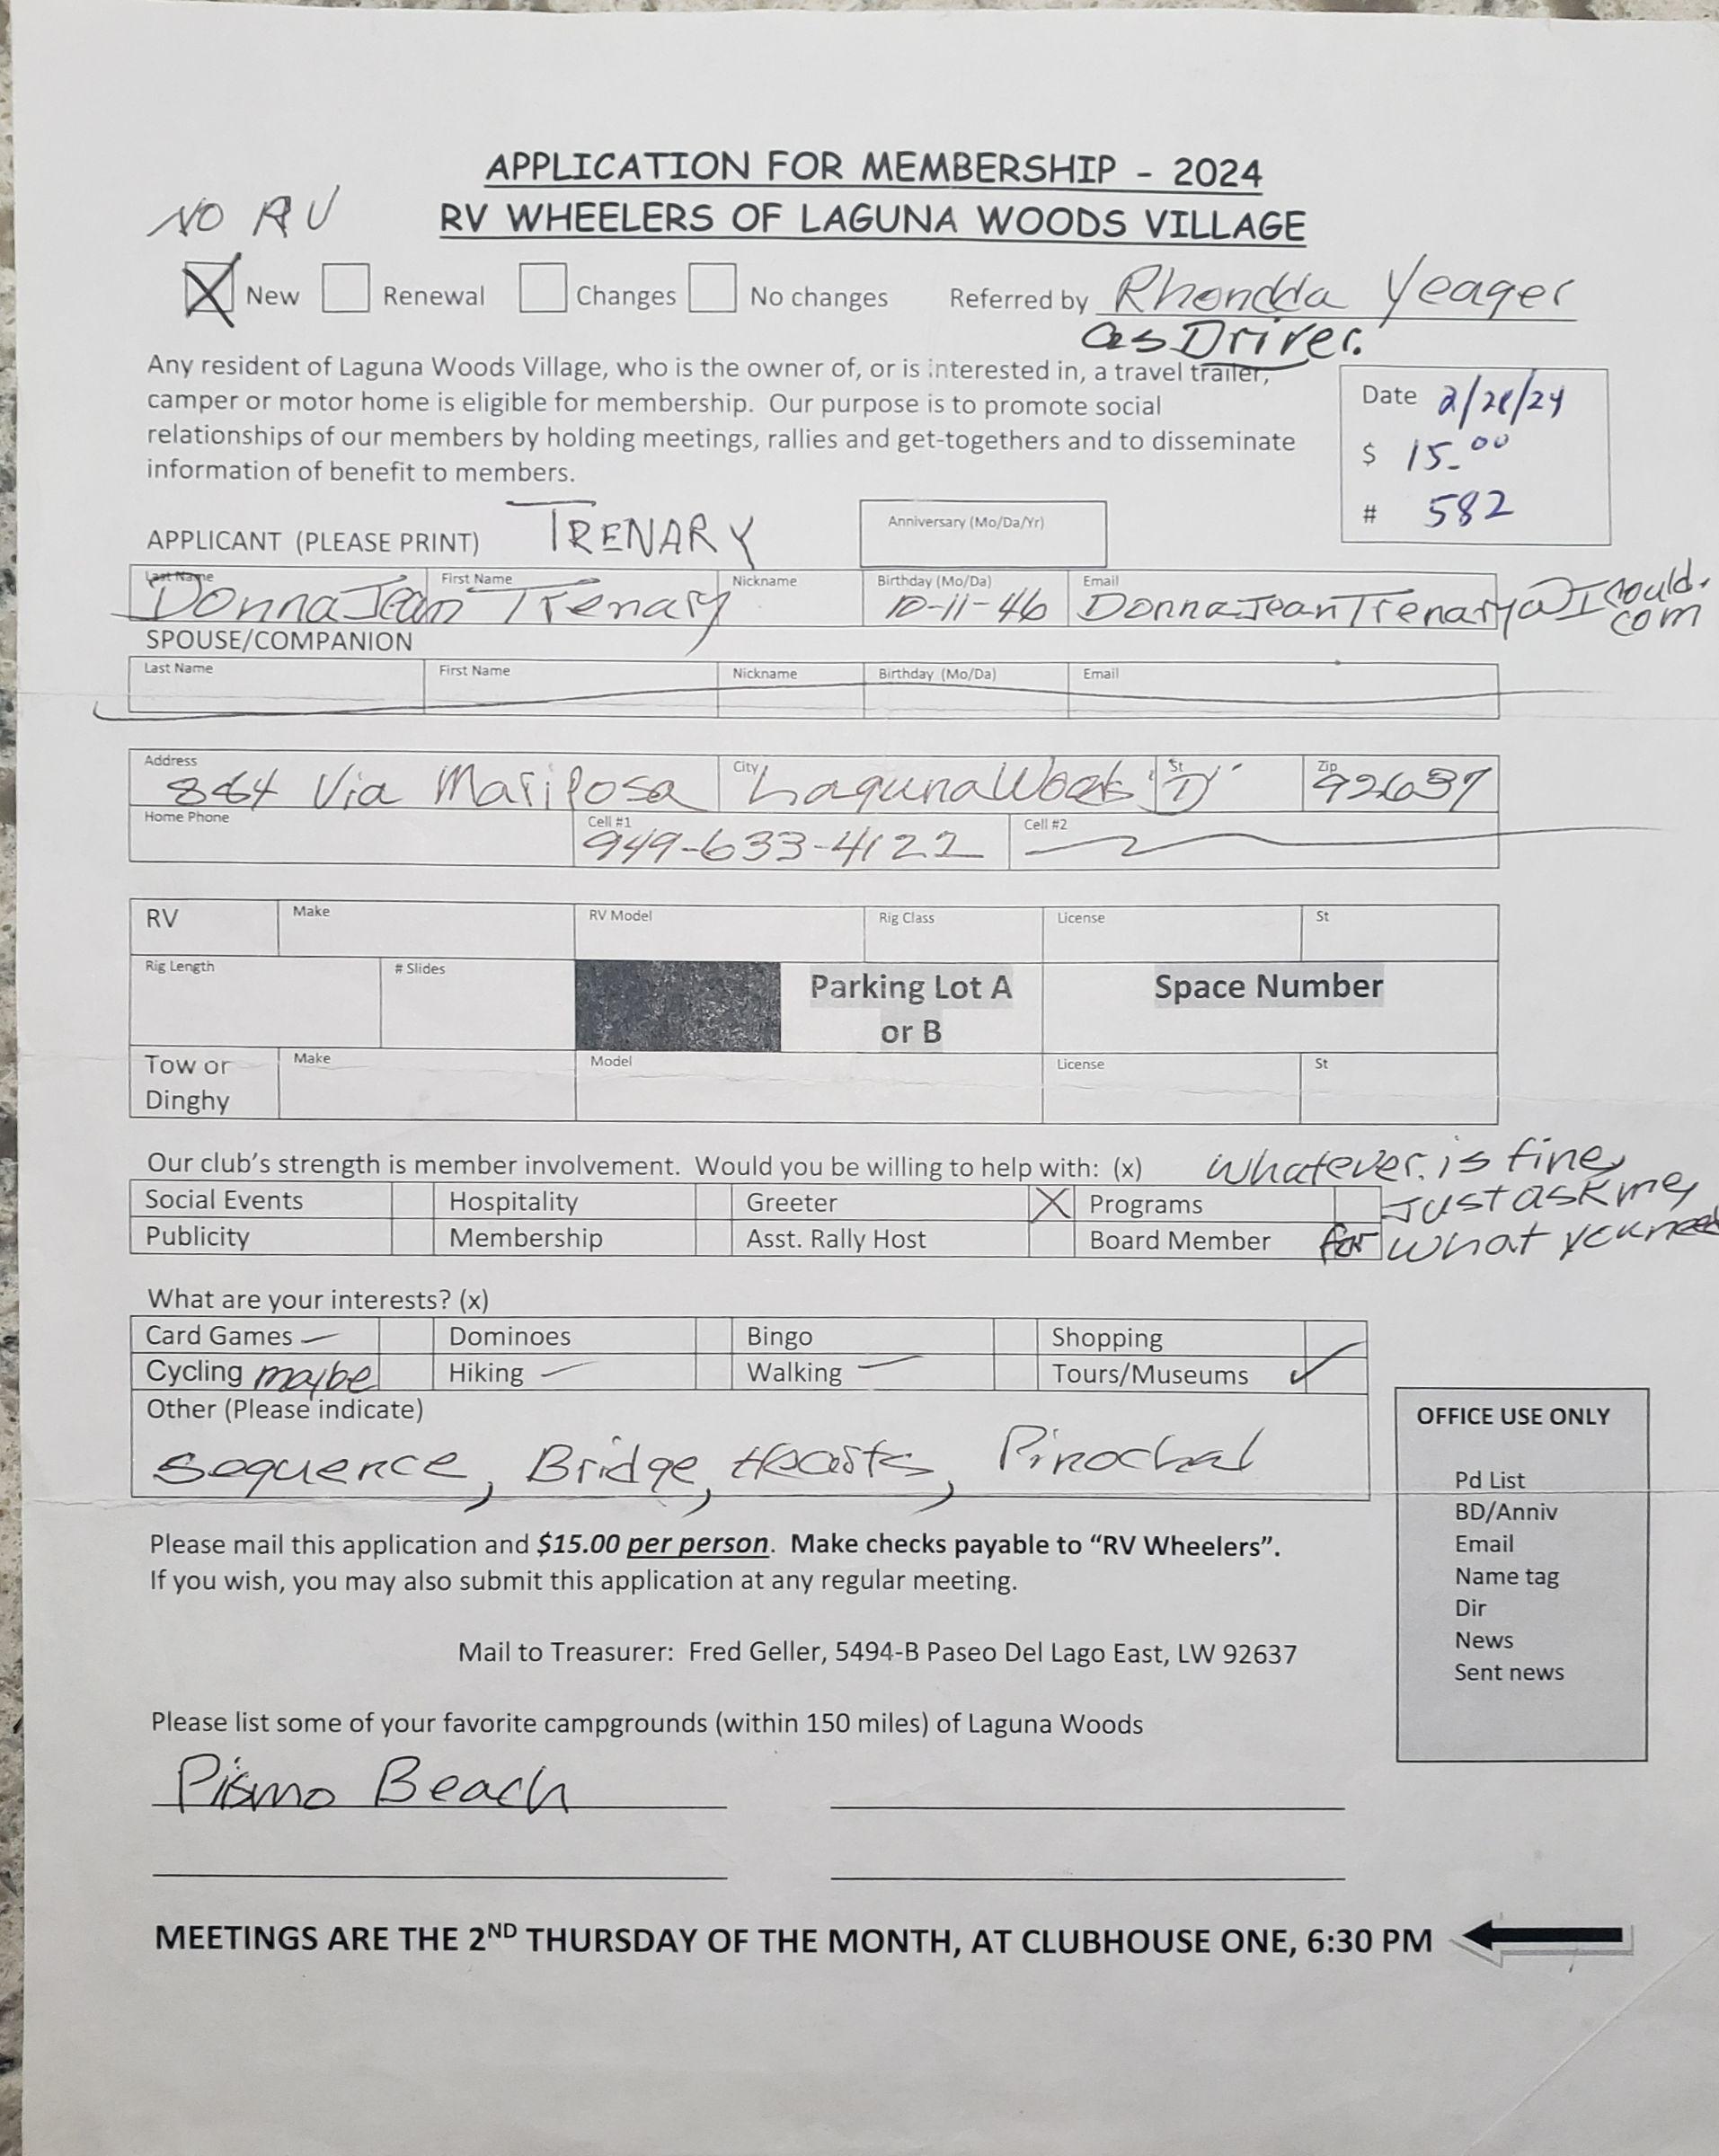 APPLICATION FOR MEMBERSHIP - 2024
NO RV RV WHEELERS OF LAGUNA WOODS VILLAGE
X New Renewal Changes No changes Referred by Rhondda Yeager
as Driver.
Any resident of Laguna Woods Village, who is the owner of, or is interested in, a travel trailer,
camper or motor home is eligible for membership. Our purpose is to promote social
relationships of our members by holding meetings, rallies and get-togethers and to disseminate
information of benefit to members.
Date
$ 15.00
# 582
APPLICANT (PLEASE PRINT) TRENARY Anniversary (Mo/Da/Yr)
Last Name First Name Nickname Birthday (Mo/Da) Email
Donna Jean Trenary 10-11-46 DonnaJeanTrenary@Icould.
com
SPOUSE/COMPANION
Last Name First Name Nickname Birthday (Mo/Da) Email
Address City St Zip
864 Via Mariposa Laguna Woods "D" 92637
Home Phone Cell #1 Cell #2
949-633-4122
RV Make RV Model Rig Class License St
Rig Length # Slides Parking Lot A Space Number
or B
Tow or Make Model License St
Dinghy
Our club's strength is member involvement. Would you be willing to help with: (x) whatever. is fine,
Social Events Hospitality Greeter X Programs Just ask me,
Publicity Membership Asst. Rally Host Board Member for what you need
What are your interests? (x)
Card Games Dominoes Bingo Shopping
Cycling maybe Hiking Walking Tours/Museums ✓
Other (Please indicate)
Sequence, Bridge, Hearts, Pinochal
Please mail this application and $15.00 per person. Make checks payable to “RV Wheelers”.
If you wish, you may also submit this application at any regular meeting.
Mail to Treasurer: Fred Geller, 5494-B Paseo Del Lago East, LW 92637
OFFICE USE ONLY
Pd List
BD/Anniv
Email
Name tag
Dir
News
Sent news
Please list some of your favorite campgrounds (within 150 miles) of Laguna Woods
Pismo Beach
MEETINGS ARE THE 2ND THURSDAY OF THE MONTH, AT CLUBHOUSE ONE, 6:30 PM